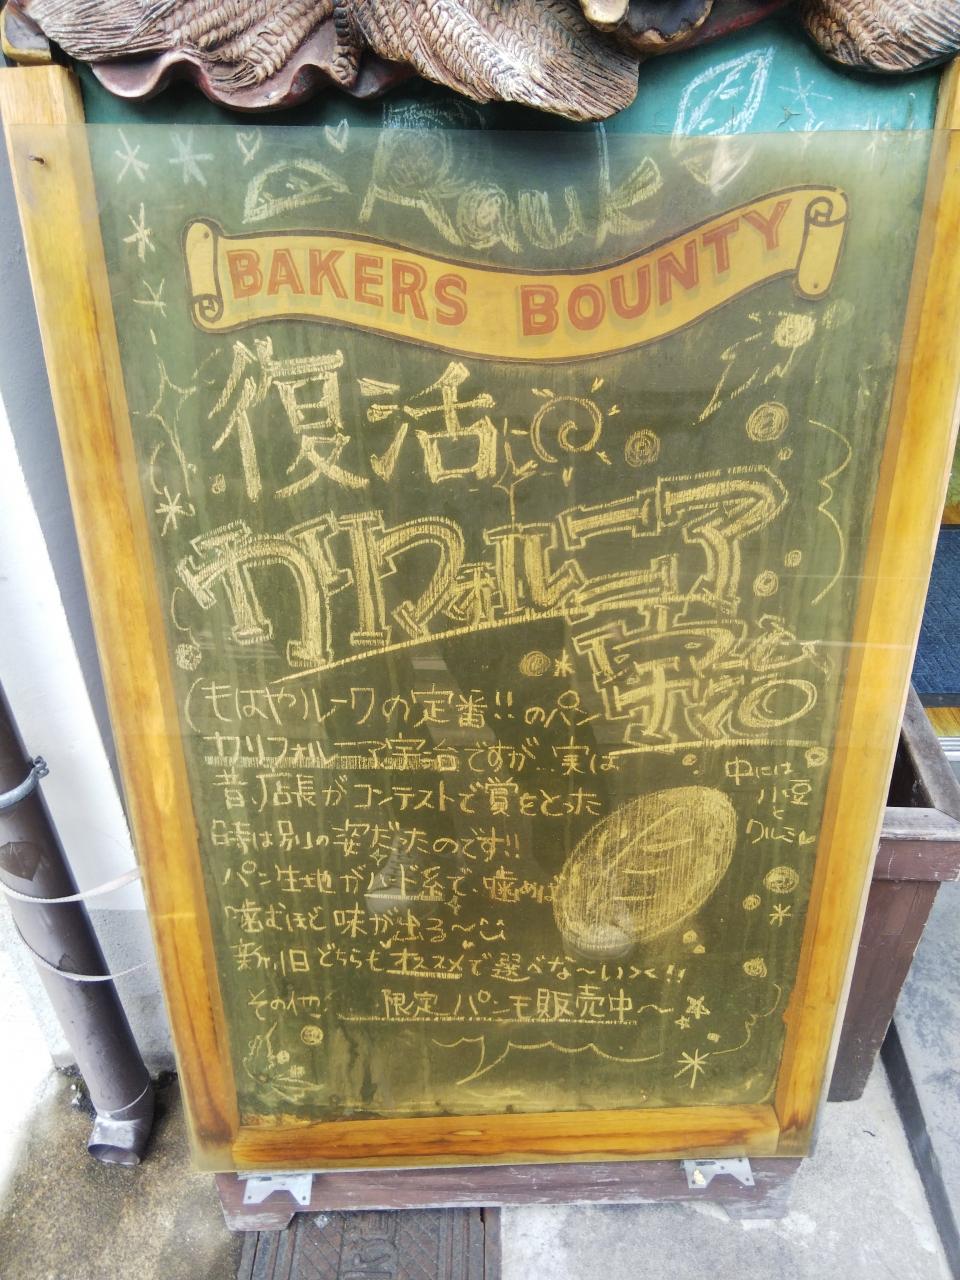 Rauk
BAKERS BOUNTY
復活
カリフォルニア
寅治
(もはやルークの定番!! のパン
カリフォルニア寅治ですが、実は
昔、店長がコンテストで賞をとった
時は別の姿だったのです!!
パン生地がハード系で、噛めば
噛むほど味が出る〜
新、旧どちらもオススメで選べな〜い><!!
その他、限定パンも販売中〜
中には
小豆
と
クルミ